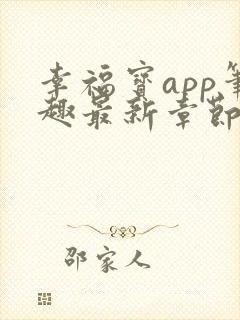 幸福宝app笔
趣最新章节
邵家人